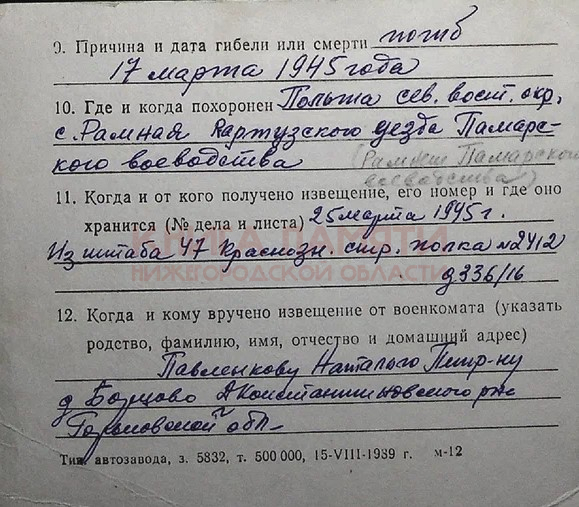 9. Причина и дата гибели или смерти погиб
17 марта 1945 года
10. Где и когда похоронен Польша сев. вост. окр.
с. Рамная Картузского уезда Памарс-
кого воеводства (Рамлет Памарского
воеводства)
11. Когда и от кого получено извещение, его номер и где оно
хранится (№ дела и листа) 25 марта 1945 г.
Из штаба 47 Краснозн. стр. полка №2412
д 336/16
КНИГА ПАМЯТИ
НИЖЕГОРОДСКОЙ ОБЛАСТИ
12. Когда и кому вручено извещение от военкомата (указать
родство, фамилию, имя, отчество и домашний адрес)
Павленкову Наталью Петр-ну
д Борцово Д Константиновского р-на
Горьковской обл-
Тип. автозавода, з. 5832, т. 500 000, 15-VIII-1989 г. м-12